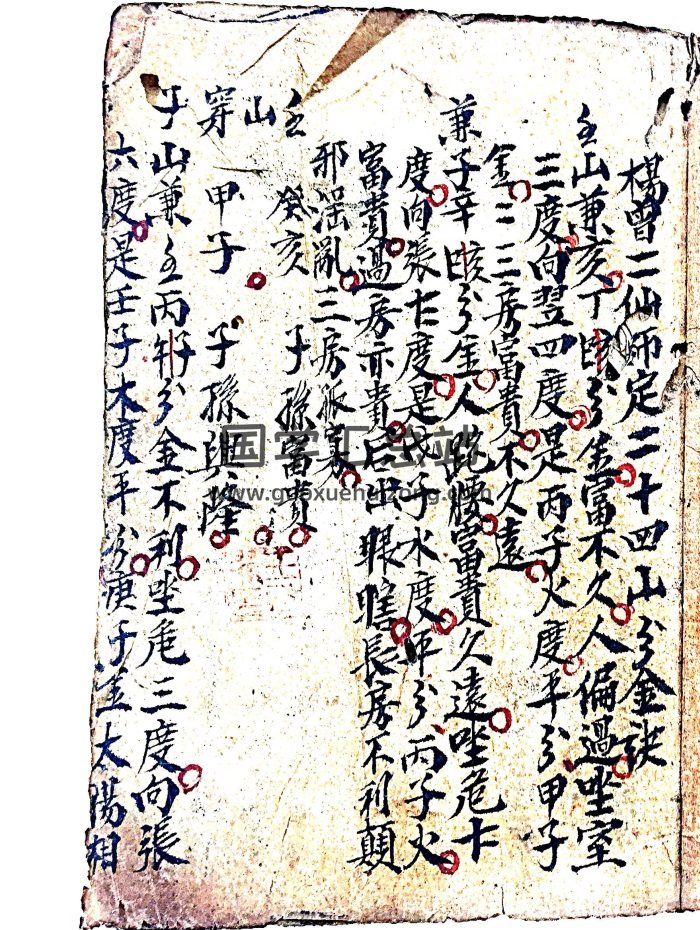 楊曾二仙师定二十四山分金訣
壬山兼亥丁分金富不久人偏過坐室
三度向翌四度是丙子火度平分甲子
金二三房富貴不久遠
兼子辛分金人腰富貴久遠坐危七
度向張七度是戊子水度平分丙子火
富貴過房亦貴后出眼瞎長房不利顛
邪淫亂三房孤寡
壬
癸亥 子孫富貴
山
穿 甲子 子孫興隆
子山兼壬丙分金不利坐危三度向張
六度是壬子木度平分庚子金太陽相
国学汇总站
www.guoxuehuizong.com